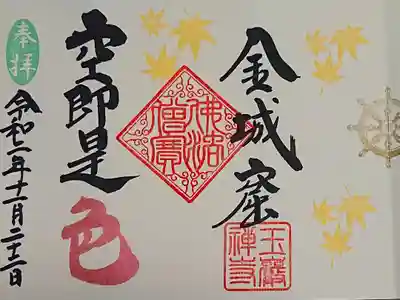 金城
玉龍禅寺
佛法
僧寶
空即是色
奉拝
令和二年十一月二十二日